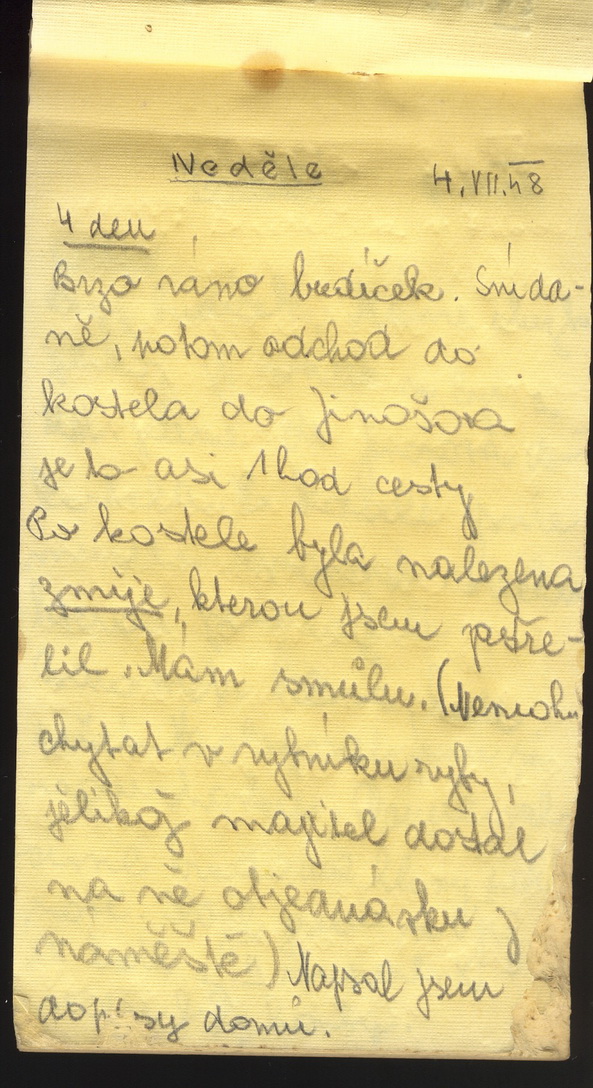 Neděle 4.VII.48
4 den
Brzo ráno budíček. Snída-
ně, potom odchod do
kostela do Jinošova
je to asi 1 hod cesty
Po kostele byla nalezena
zmije, kterou jsem
lil. Mám smůlu. (Nemohu
chytat v rybníku ryby,
jelikož majitel dostal
na ně objednávku z
náměště) Napsal jsem
dopisy domů.